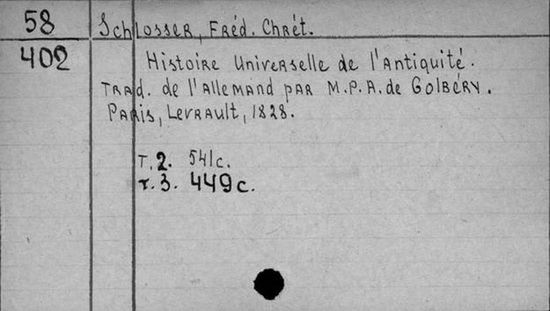 58 Schlosser, Fréd. Chrét.
402 Histoire Universelle de l'Antiquité.
Trad. de l'allemand par M.P.A. de Golbéry.
Paris, Levrault, 1828.
T.2. 541c.
T.3. 449c.